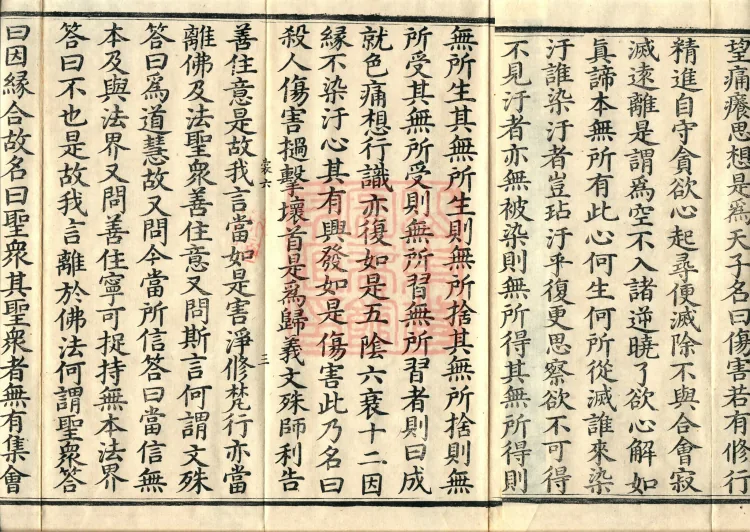 望痛癢思想是為天子名曰傷害若有修行
精進自守貪欲心起尋便滅除不與合會寂
滅遠離是謂為空不入諸逆曉了欲心解如
真諦本無所有此心何生何所從滅誰來染
汙誰染汙者豈玷汙乎復更思察欲不可得
不見汙者亦無被染則無所得其無所得則
無所生其無所生則無所捨其無所捨則無
所受其無所受則無所習無所習者則曰成
就色痛想行識亦復如是五陰六衰十二因
緣不染汙心其有興發如是傷害此乃名曰
殺人傷害撾擊壞首是為歸義文殊師利告
裳六
三
善住意是故我言當如是害淨修梵行亦當
離佛及法聖衆善住意又問斯言何謂文殊
答曰為道慧故又問今當所信答曰當信無
本及與法界又問善住寧可捉持無本法界
答曰不也是故我言離於佛法何謂聖衆答
曰因緣合故名曰聖衆其聖衆者無有集會